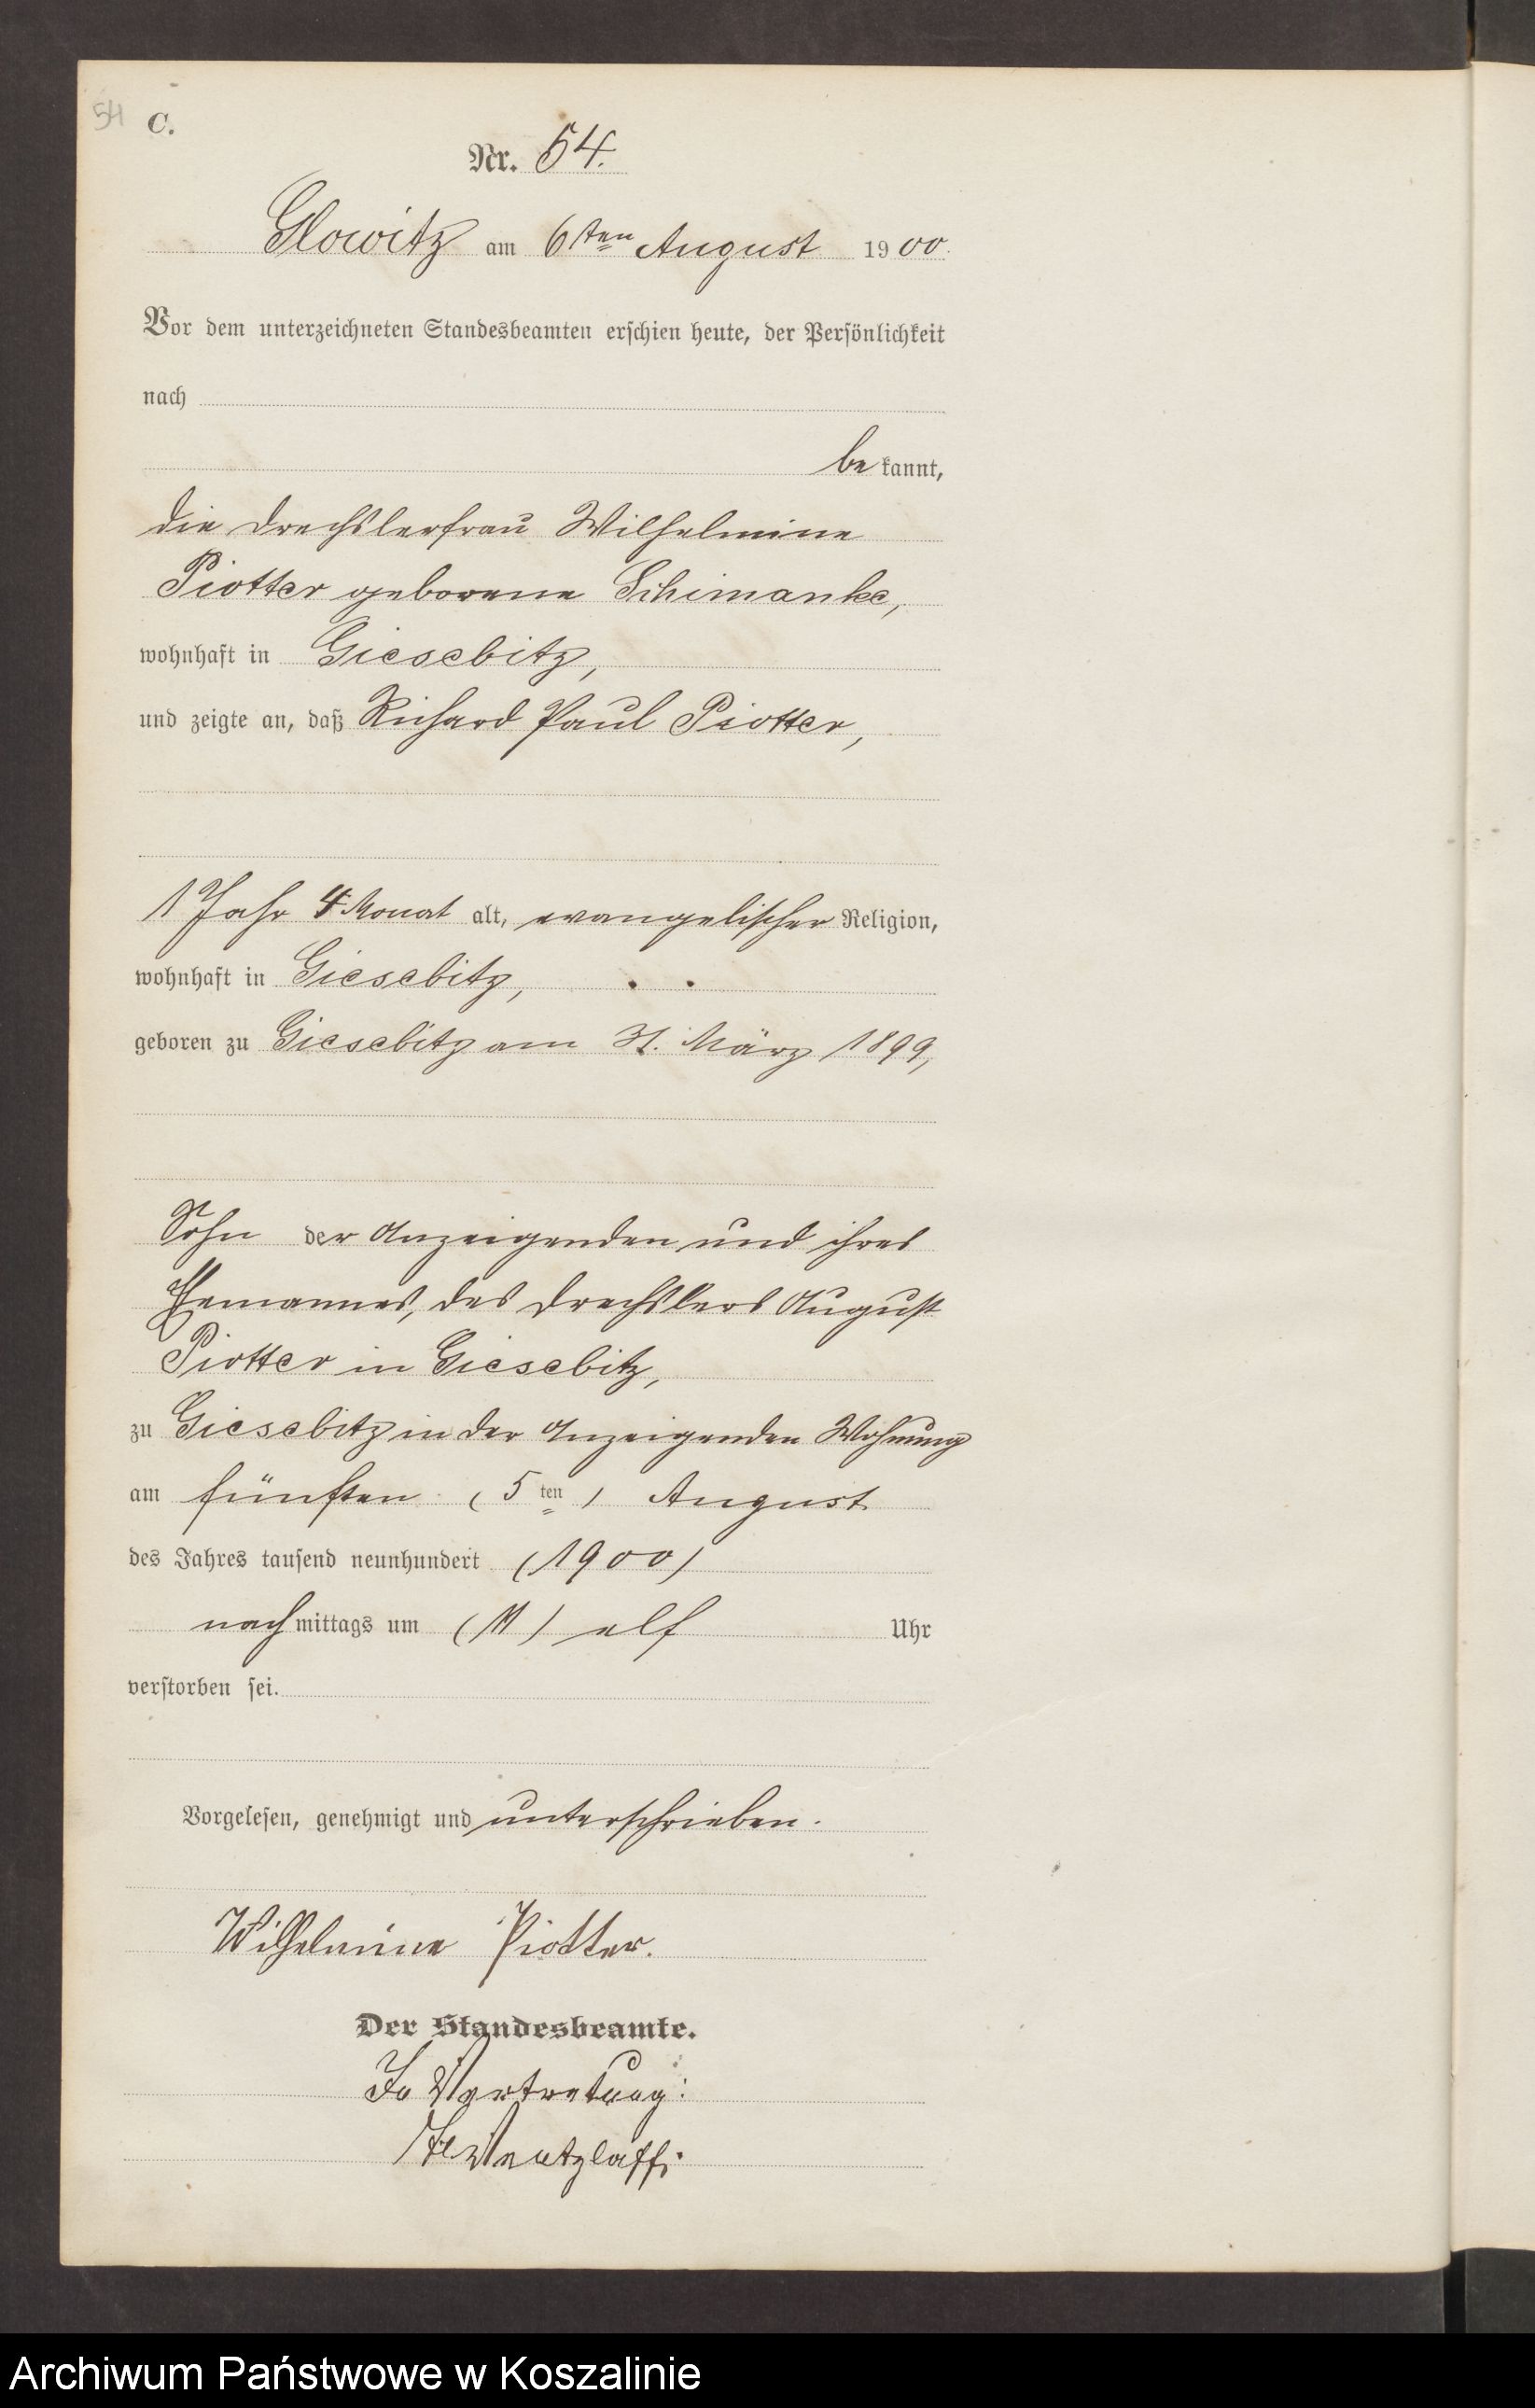 54 C.
Nr. 54.
Glowitz am 6ten August 1900.
Vor dem unterzeichneten Standesbeamten erschien heute, der Persönlichkeit
nach
bekannt,
die Drechslerfrau Wilhelmine
Piotter geborene Schimanke,
wohnhaft in Giesebitz,
und zeigte an, daß Richard Paul Piotter,
1 Jahr 4 Monat alt, evangelischer Religion,
wohnhaft in Giesebitz,
geboren zu Giesebitz am 31. März 1899,
Sohn der Anzeigenden und ihres
Ehemannes, des Drechslers August
Piotter in Giesebitz,
zu Giesebitz in der Anzeigenden Wohnung
am fünften (5ten) August
des Jahres tausend neunhundert (1900)
nachmittags um (11) elf Uhr
verstorben sei.
Vorgelesen, genehmigt und unterschrieben.
Wilhelmine Piotter.
Der Standesbeamte.
In Vertretung:
Wentzlaff.
Archiwum Państwowe w Koszalinie